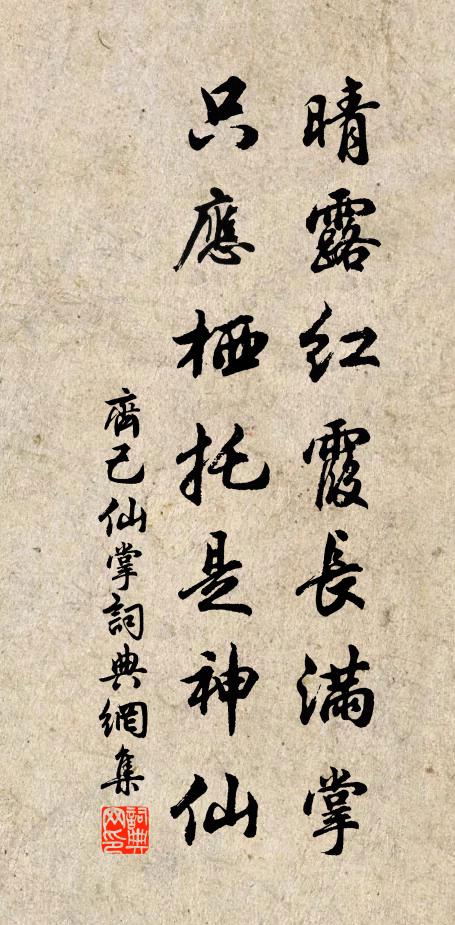 晴露紅霞長滿掌
只應栖托是神仙
齊己仙掌詞典網集
詞典網印